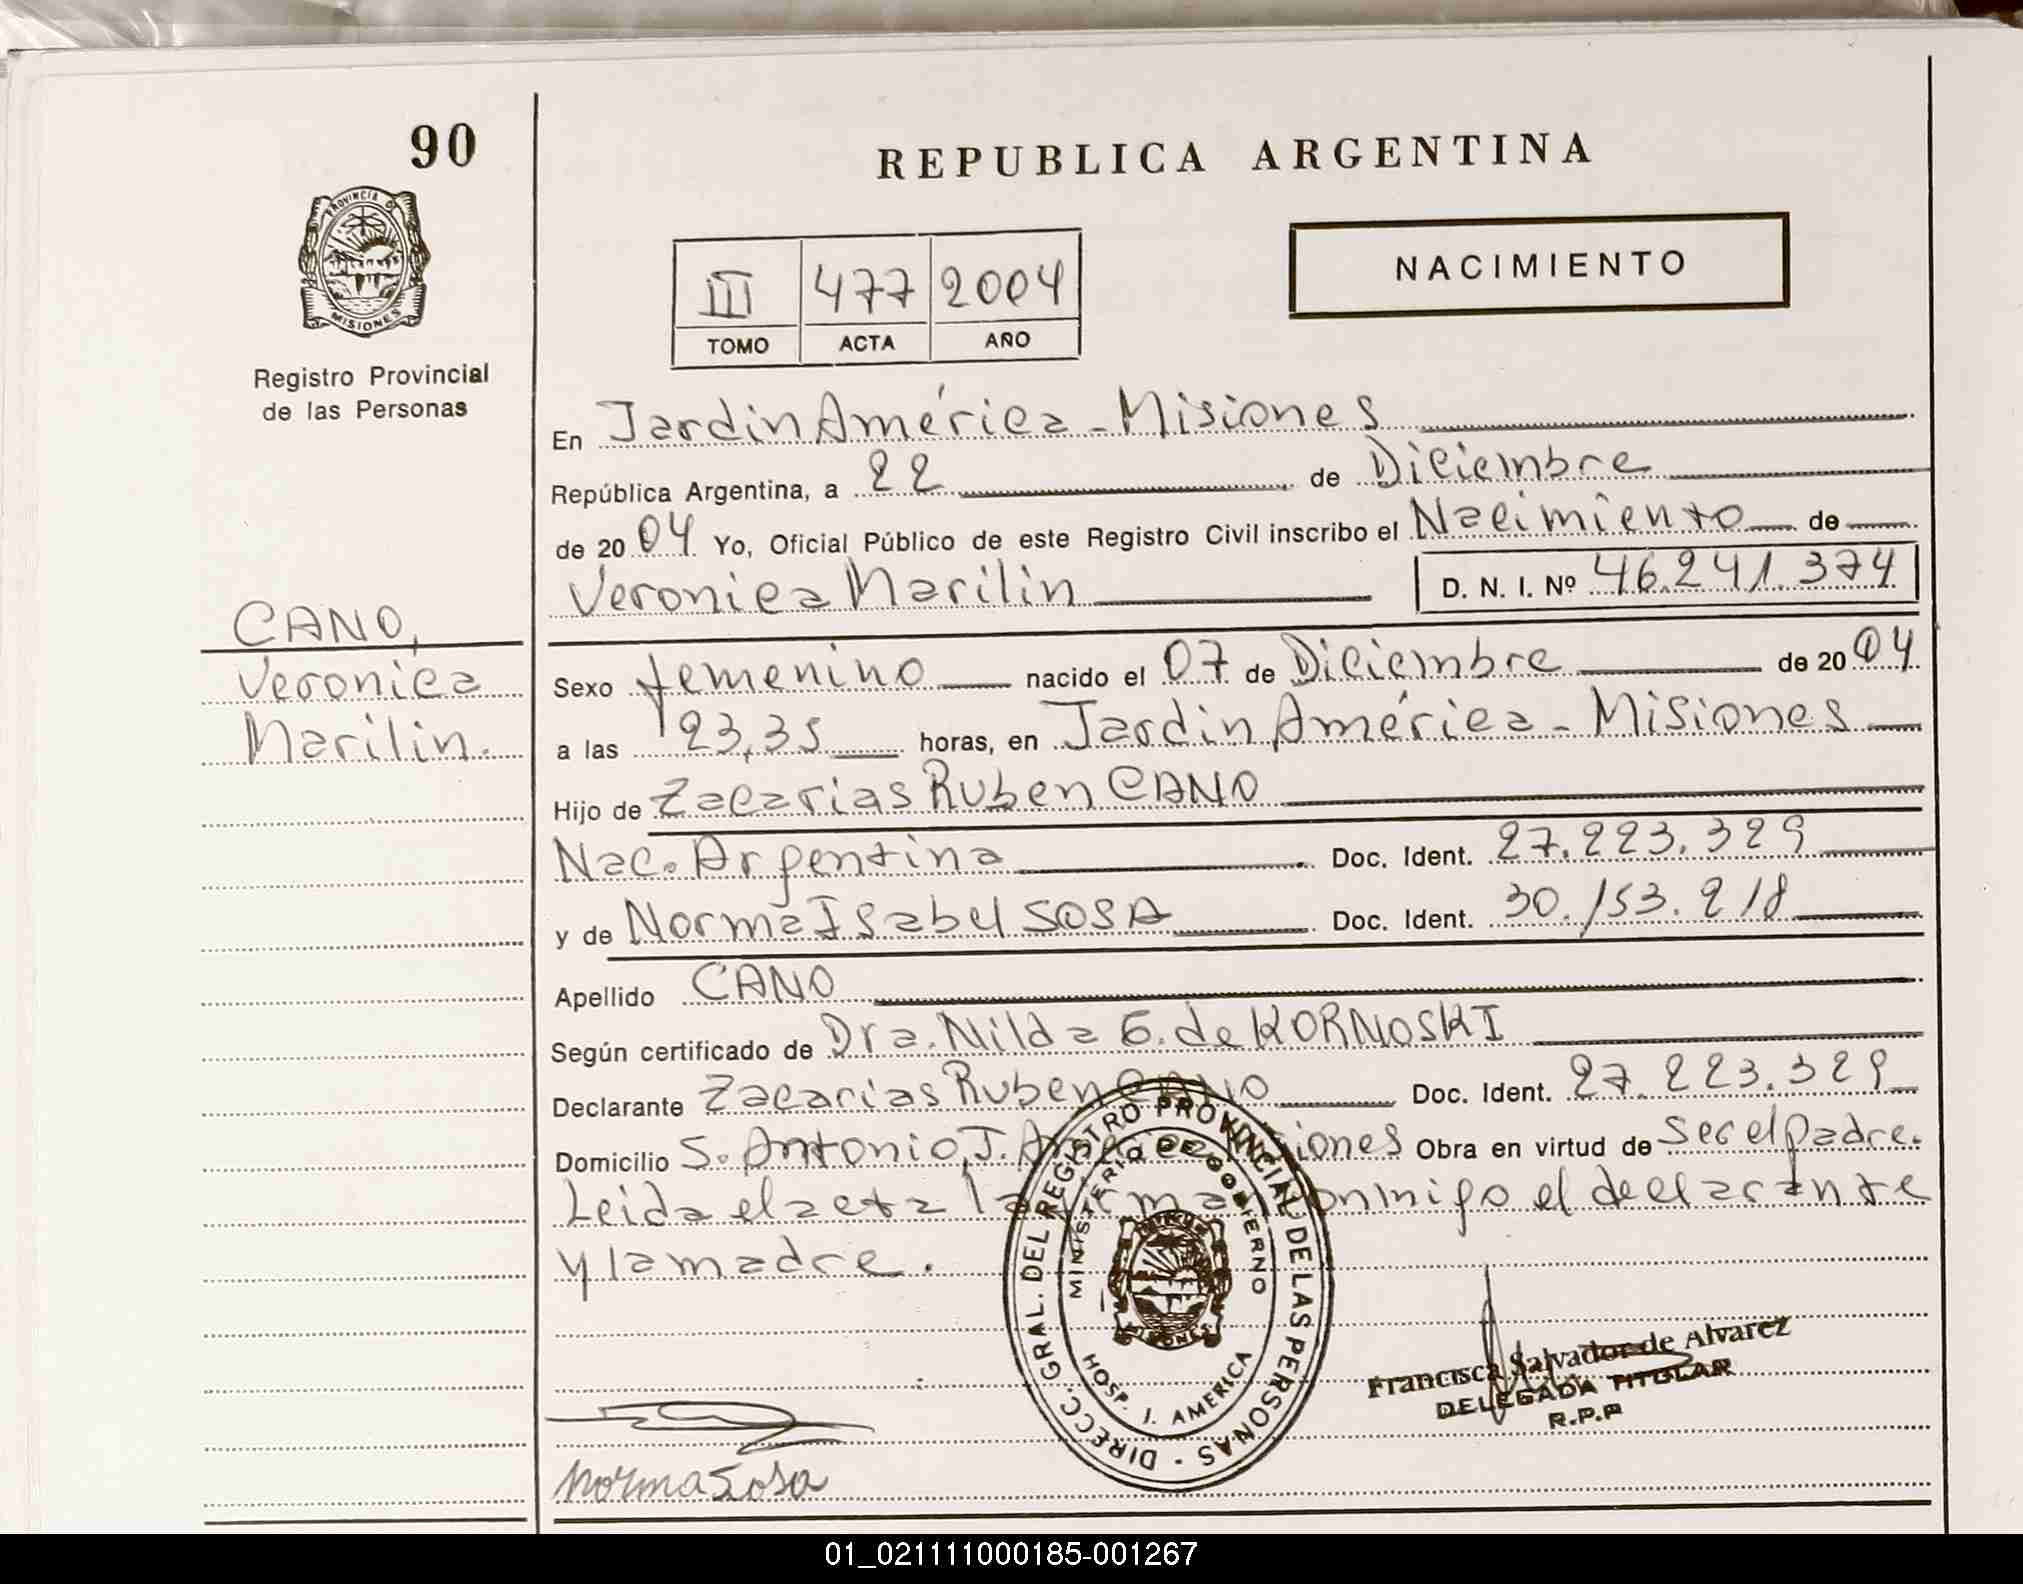 90
REPUBLICA ARGENTINA
PROVINCIA D
MISIONES
Registro Provincial
de las Personas
III 477 2004
TOMO ACTA AÑO
NACIMIENTO
En Jardin América - Misiones
República Argentina, a 22 de Diciembre
de 2004 Yo, Oficial Público de este Registro Civil inscribo el Nacimiento de
Veronica Marilin D. N. I. Nº 46.241.374
CANO,
Veronica
Marilin.
Sexo femenino nacido el 07 de Diciembre de 2004
a las 23,35 horas, en Jardin América - Misiones
Hijo de Zacarias Ruben CANO
Nac. Argentina Doc. Ident. 27.223.329
y de Norma Isabel SOSA Doc. Ident. 30.153.218
Apellido CANO
Según certificado de Dra. Nilda G. de KORNOSKI
Declarante Zacarias Ruben CANO Doc. Ident. 27.223.329
Domicilio S. Antonio, J. América Misiones Obra en virtud de ser el padre.
Leida el acta la firman conmigo el declarante
y la madre.
DIRECC. GRAL. DEL REGISTRO PROVINCIAL DE LAS PERSONAS
MINISTERIO DE GOBIERNO
MISIONES
HOSP. J. AMERICA
Francisca Salvador de Alvarez
DELEGADA TITULAR
R.P.P
Norma Sosa
01_021111000185-001267